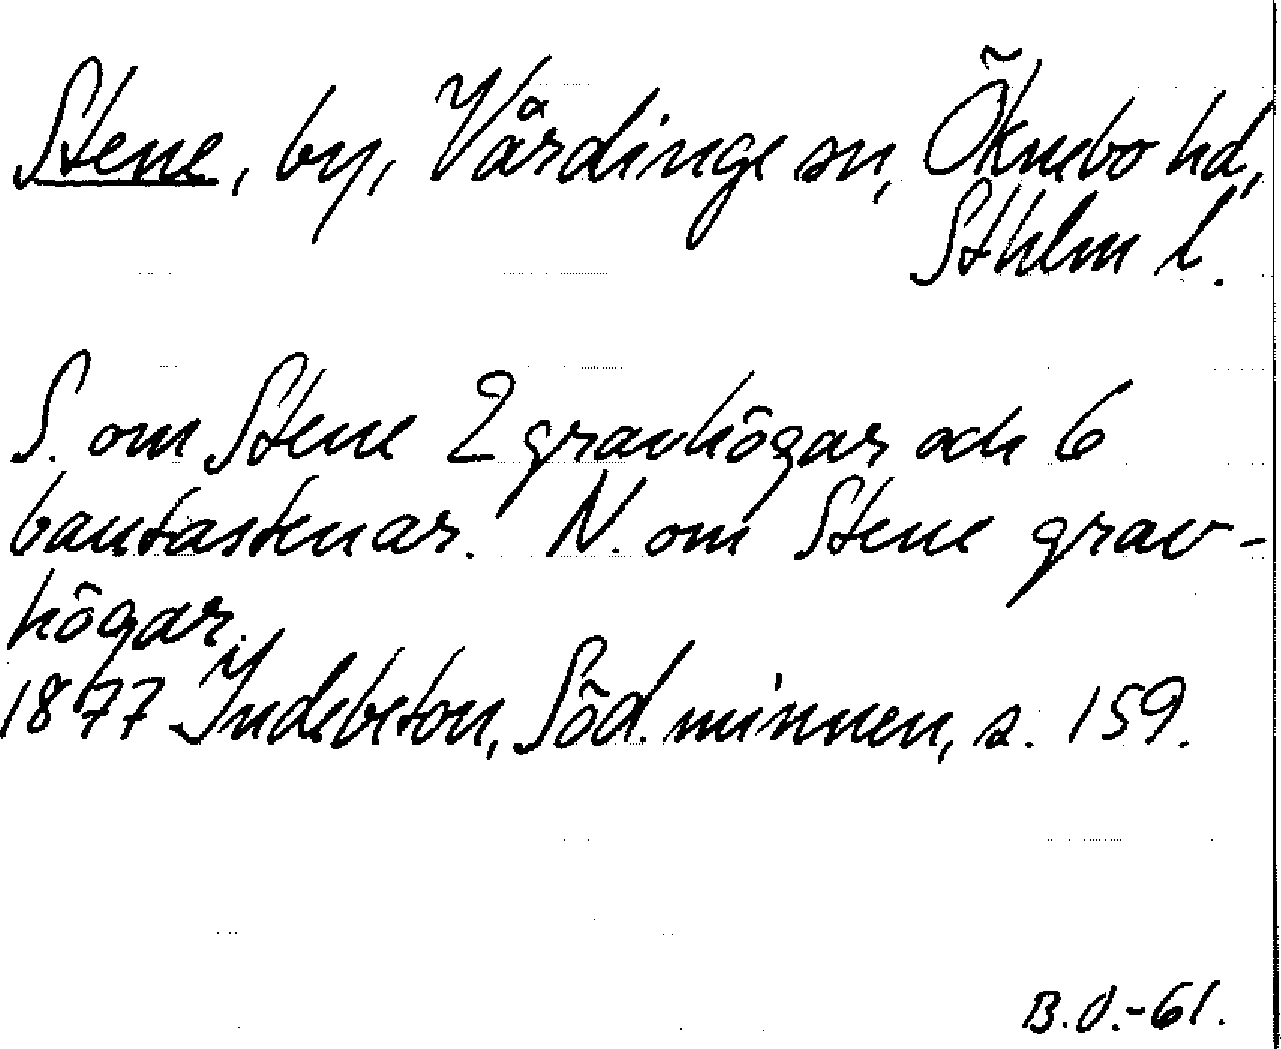 Stene, by, Vårdinge sn, Öknebo hd,
Sthlm l.
S. om Stene 2 gravhögar och 6
bautastenar. N. om Stene grav-
högar.
1877 Indebetou, Söd. minnen, s. 159.
B.O.-61.